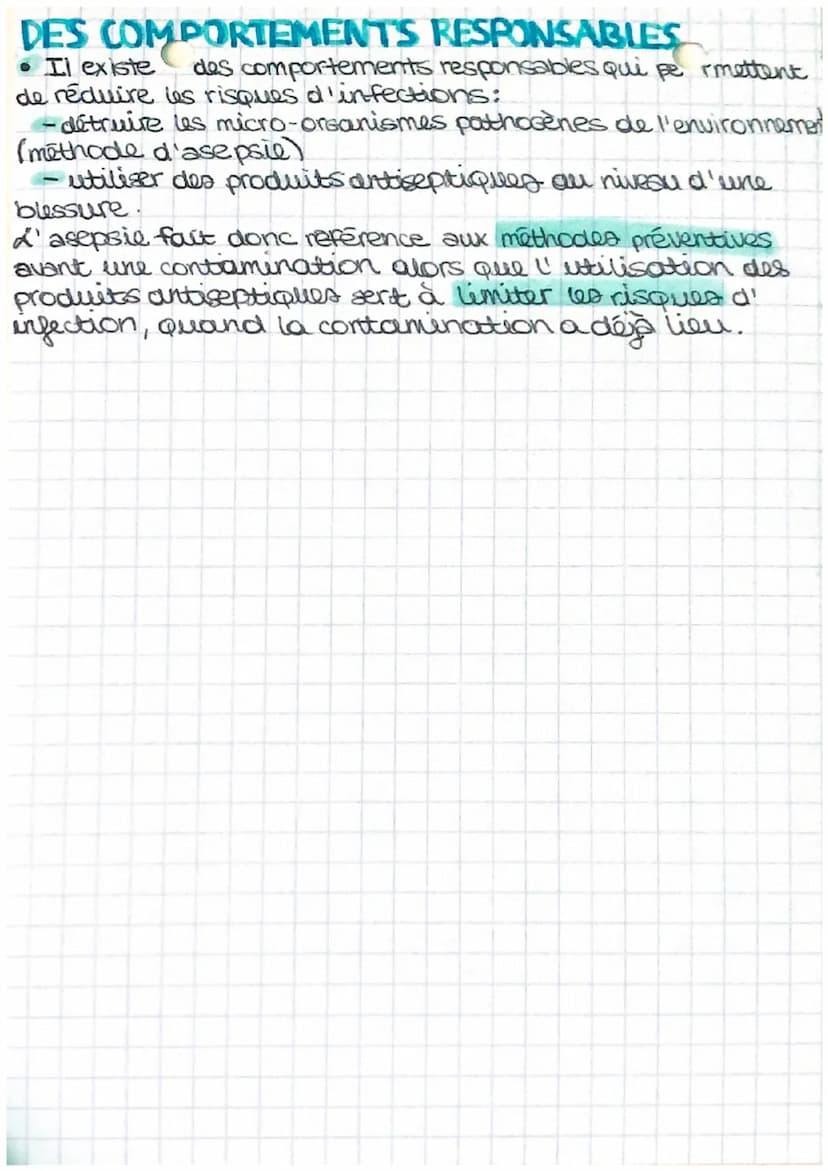 DES COMPORTEMENTS RESPONSABLES
• Il existe des comportements responsables qui pe rmettent
de réduire les risques d'infections:
- détruire les micro-organismes pathogènes de l'environnement
(méthode d'asepsie)
- utiliser des produits antiseptiques au niveau d'une
blessure.
L'asepsie fait donc référence aux méthodes préventives
avant une contamination alors que l'utilisation des
produits antiseptiques sert à limiter les risques d'
infection, quand la contamination a déjà lieu.